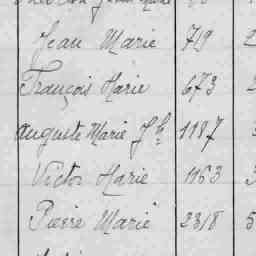 Jean Marie 719
François Marie 673
Auguste Marie Jh 1187
Victor Marie 1163
Pierre Marie 2318 5